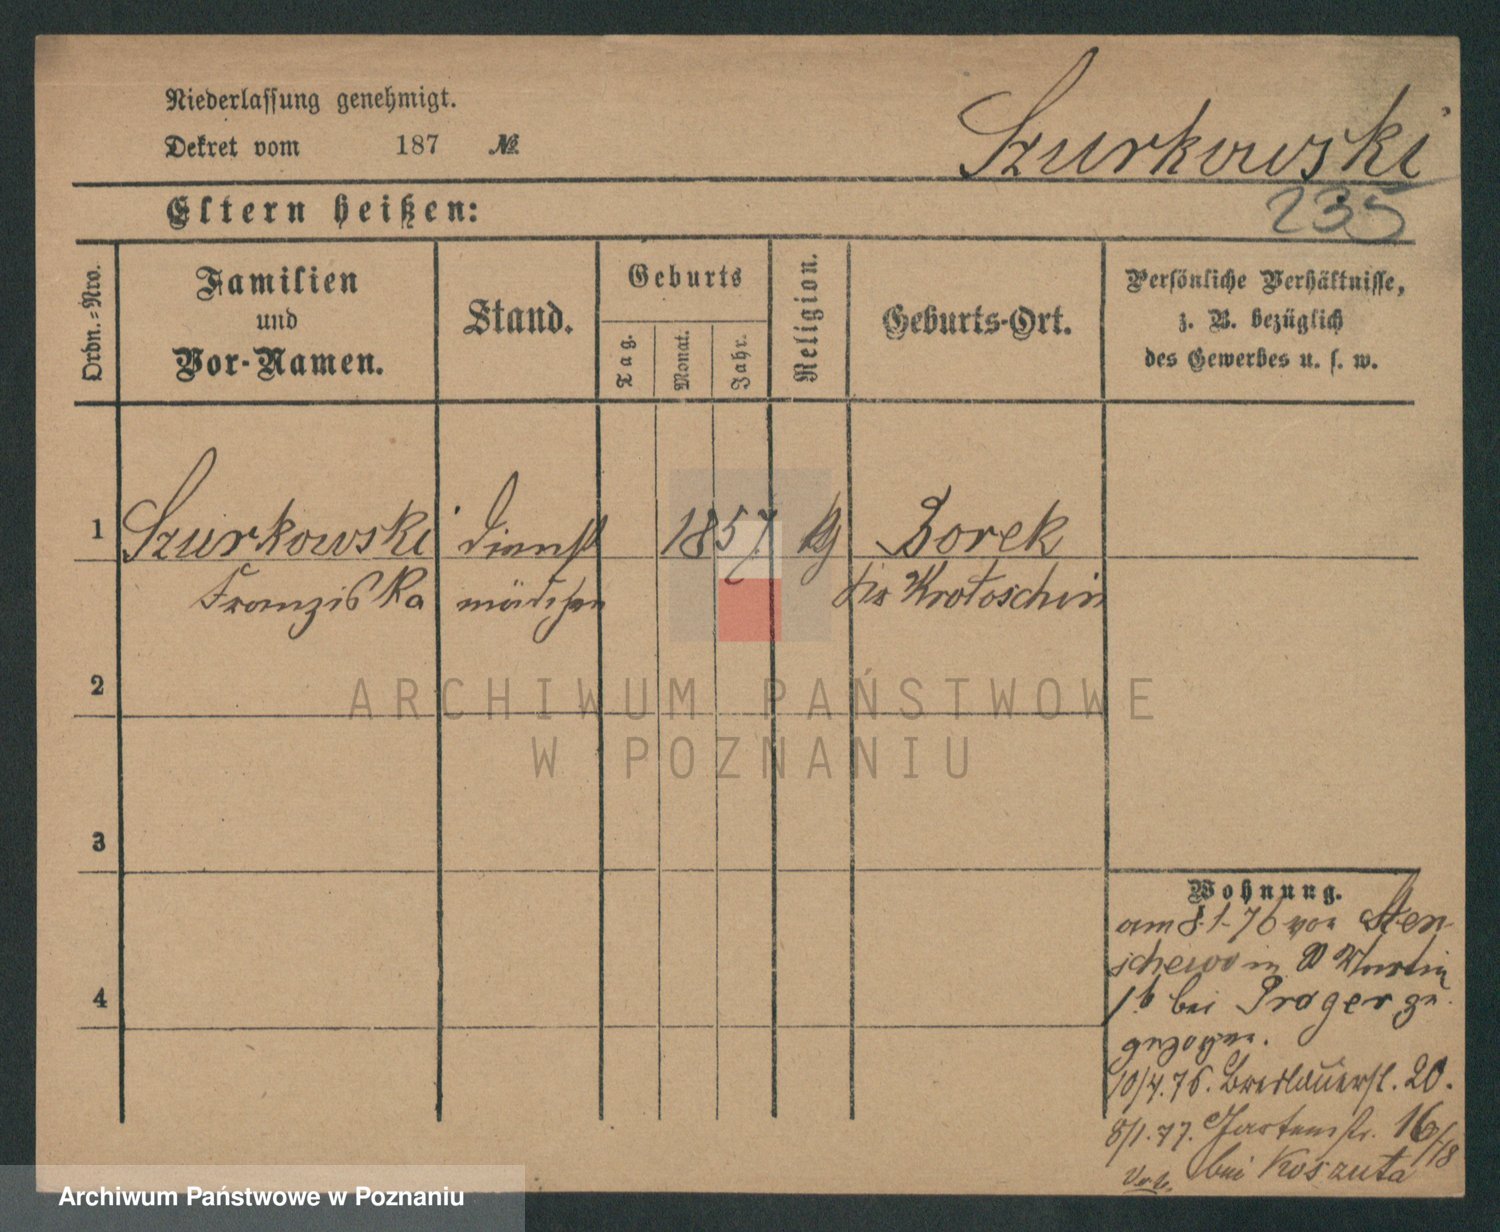 Niederlassung genehmigt.
Dekret vom 187 №
Szurkowski
235
Eltern heißen:
Ordn.-Nro.
Familien
und
Vor-Namen.
Stand.
Geburts
Tag.
Monat.
Jahr.
Religion.
Geburts-Ort.
Persönliche Verhältnisse,
z. B. bezüglich
des Gewerbes u. s. w.
1 Szurkowski Dienst 1857. Borek
Franziska mädchen Krotoschin
2
ARCHIWUM PAŃSTWOWE
W POZNANIU
3
4
Wohnung.
am 8.1.76 von Sten-
schewo in Martin
bei Prager zu-
gezogen.
10/4.76. Breslauerst. 20.
8/1.77. Gartenstr. 16/18
bei Koszuta
Archiwum Państwowe w Poznaniu